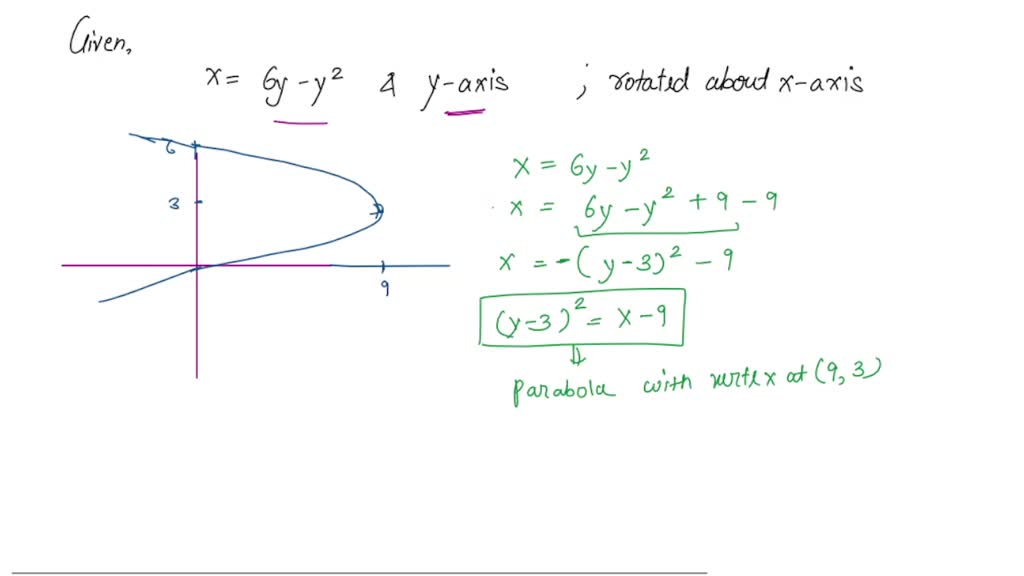 Given,
x = 6y - y² & y-axis ; rotated about x-axis
6
3
9
x = 6y - y²
x = 6y - y² + 9 - 9
x = -(y-3)² - 9
(y-3)² = x - 9
parabola with vertex at (9, 3)